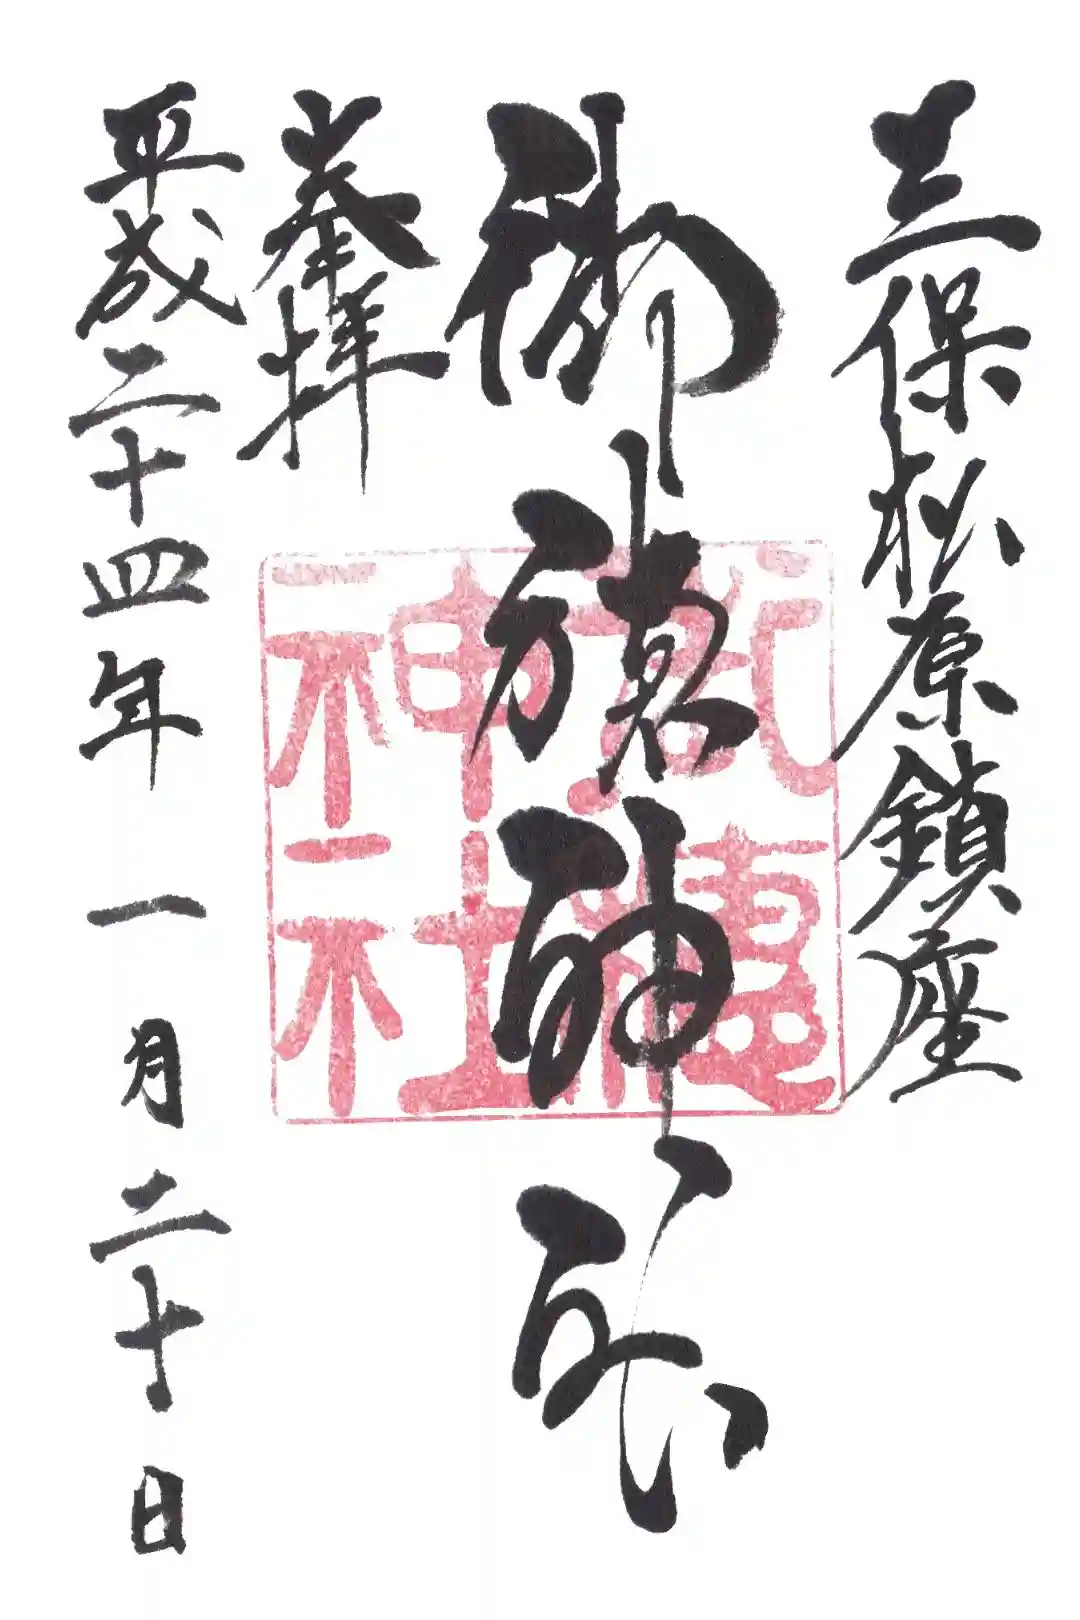 三保松原鎮座
御穗神社
奉拝
平成二十四年一月二十日
御穗
神社